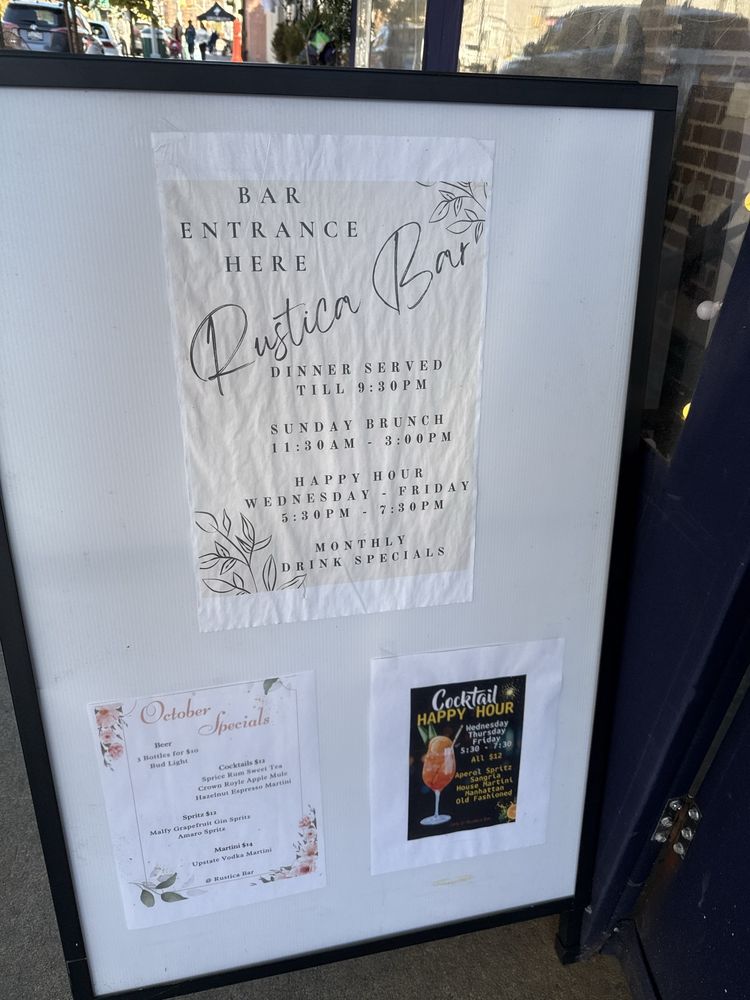 BAR
ENTRANCE
HERE
Rustica Bar
DINNER SERVED
TILL 9:30PM
SUNDAY BRUNCH
11:30AM - 3:00PM
HAPPY HOUR
WEDNESDAY - FRIDAY
5:30PM - 7:30PM
MONTHLY
DRINK SPECIALS
October
Specials
Beer
3 Bottles for $10
Bud Light
Cocktails $12
Sprice Rum Sweet Tea
Crown Royle Apple Mule
Hazelnut Espresso Martini
Spritz $12
Malfy Grapefruit Gin Spritz
Amaro Spritz
Martini $14
Upstate Vodka Martini
@ Rustica Bar
Cocktail
HAPPY HOUR
Wednesday
Thursday
Friday
5:30 - 7:30
All $12
Aperol Spritz
Sangria
House Martini
Manhattan
Old Fashioned